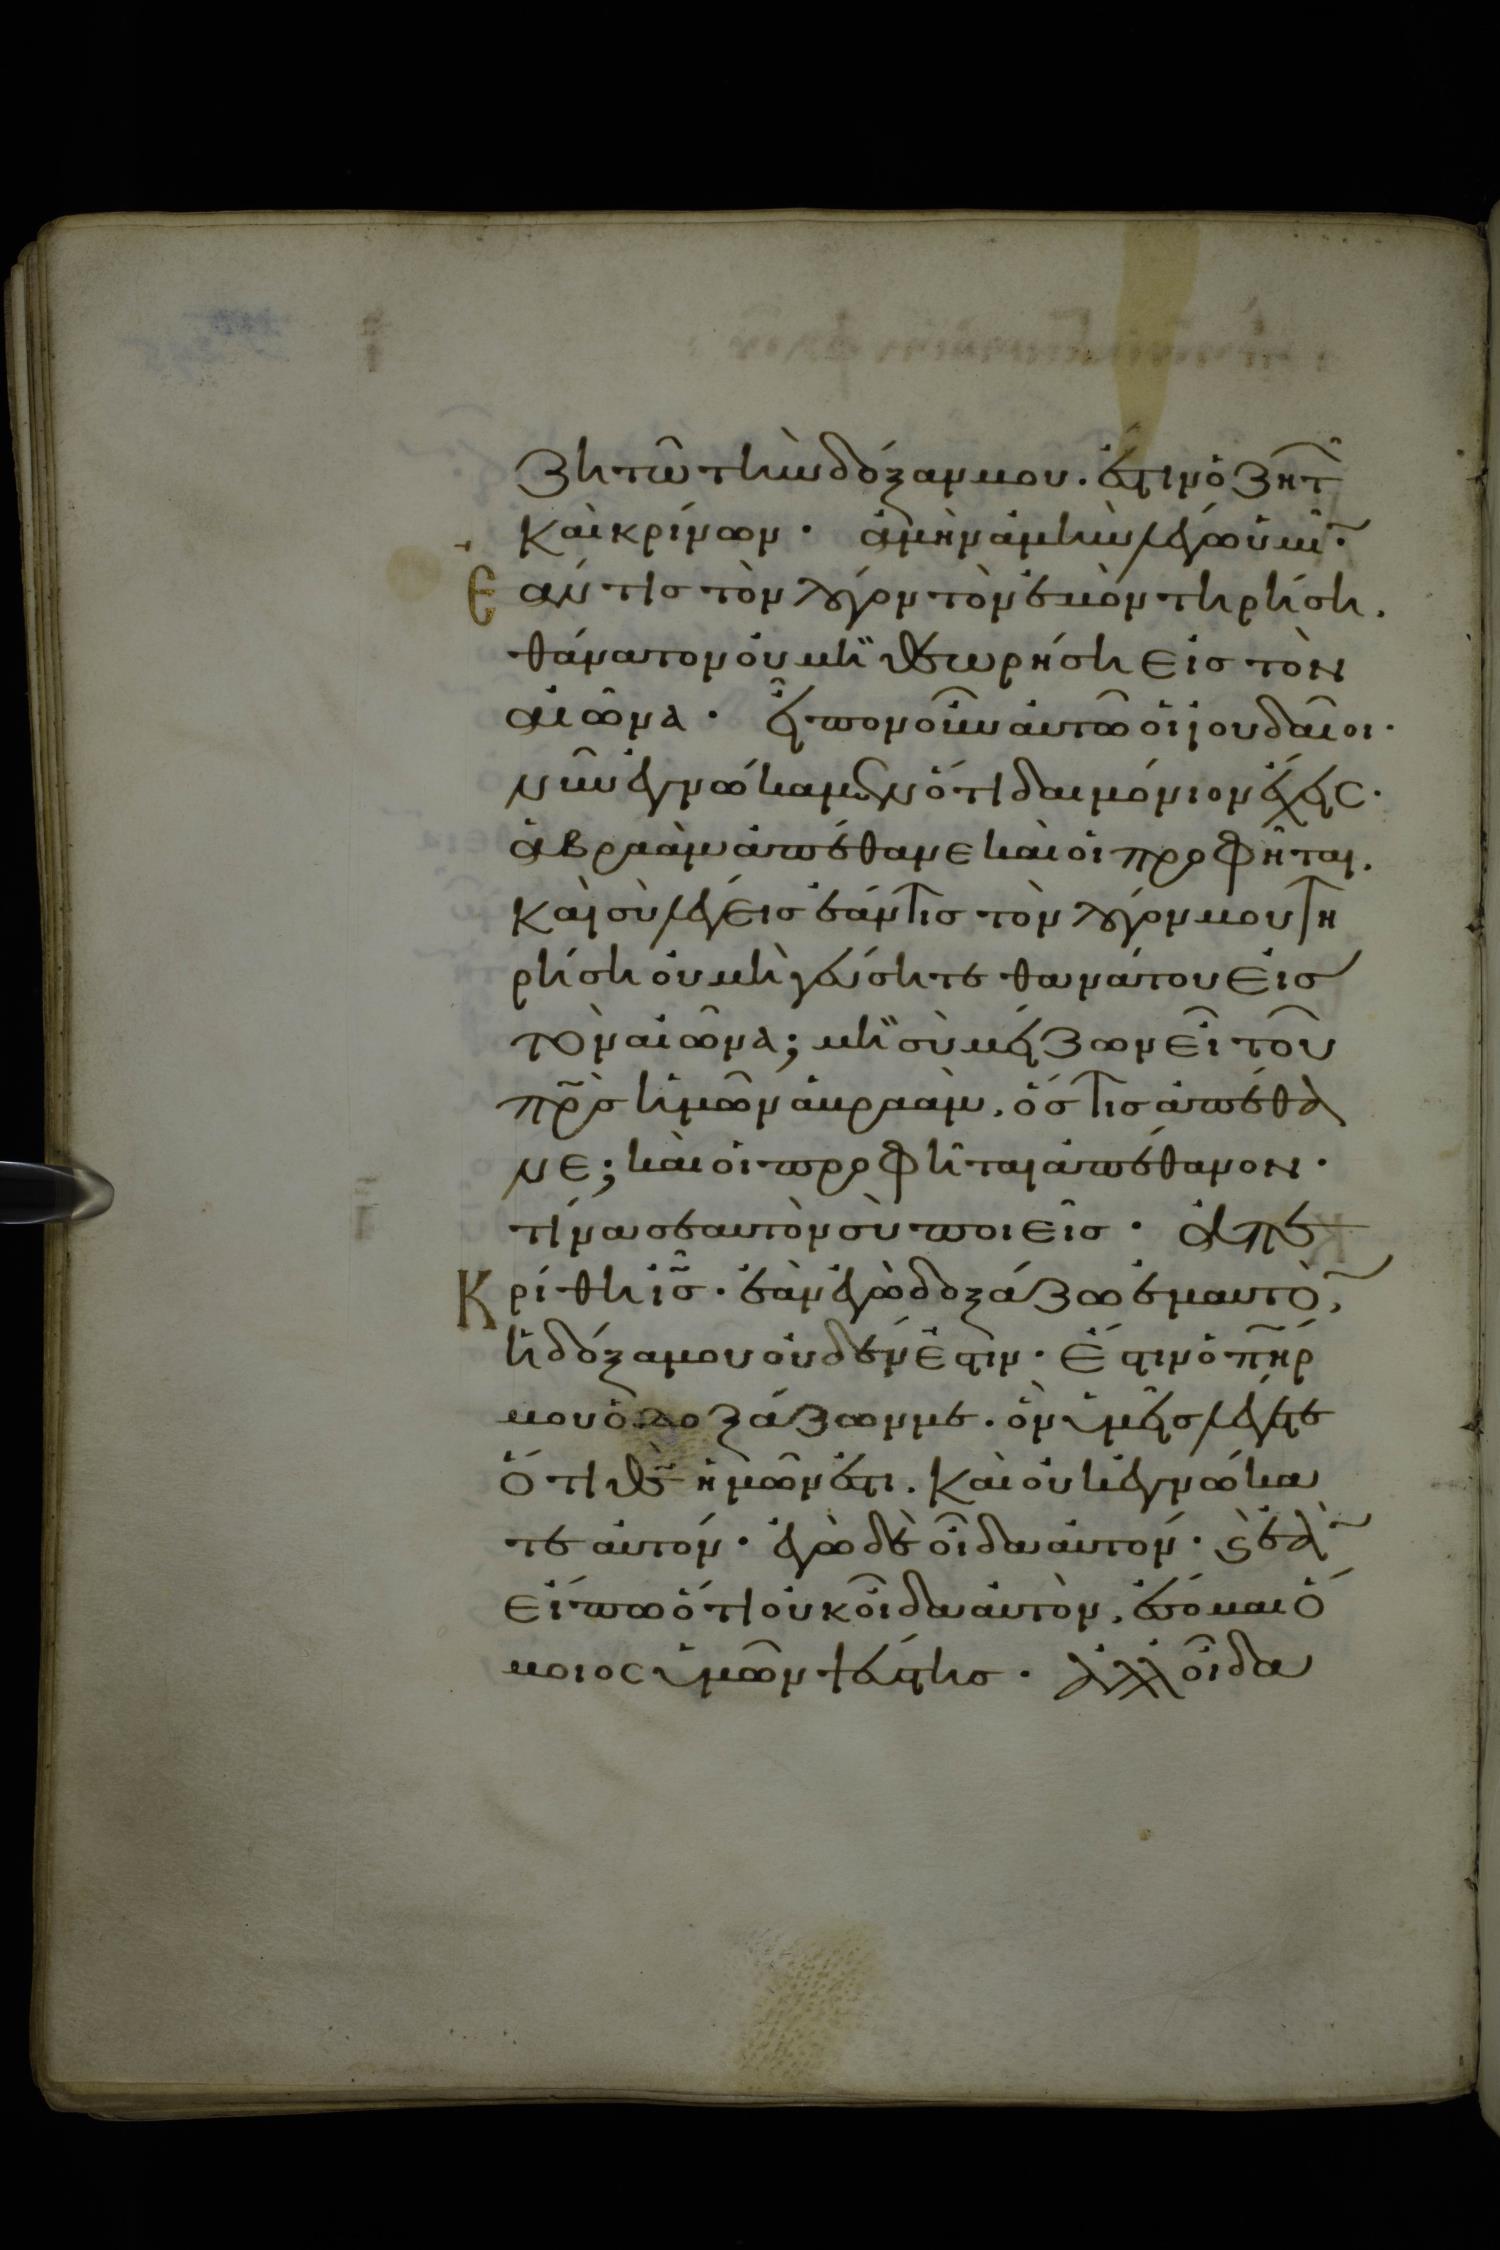 ζητῶ τὴν δόξαν μου. ἔστιν ὁ ζητῶ̂
καὶ κρίνων· ἀμὴν ἀμὴν λέγω ὑμῖ̃·
Εάν τις τὸν λόγον τὸν ἐμὸν τηρήση.
θάνατον οὐ μὴ θεωρήση εἰς τὸν
αἰῶνα· εἶπον οὖν αὐτῶ οἱ ἰουδαῖοι·
νῦν ἐγνώκαμεν ὅτι δαιμόνιον ἔχεις·
ἀβραὰμ ἀπέθανε καὶ οἱ προφῆται.
καὶ σὺ λέγεις ἐάν τις τὸν λόγον μου τη
ρήση οὐ μὴ γεύσητε θανάτου εἰς
τὸν αἰῶνα; μὴ σὺ μείζων εἶ τοῦ
πρ̃ς ἡμῶν ἀβραὰμ. ὅστις ἀπέθα
νε; καὶ οἱ προφῆται ἀπέθανον·
τίνα σεαυτὸν σὺ ποιεῖς· ἀπε
Κρίθη ἰς̃· ἐὰν ἐγὼ δοξάζω ἐμαυτὸ̃,
ἡ δόξα μου οὐδέν ἐστιν· ἔστιν ὁ πη̃ρ
μου ὁ δοξάζων με. ὃν ὑμεῖς λέγετε
ὅτι θς̃ ἡμῶν ἐστι. καὶ οὐκ ἐγνώκα
τε αὐτόν· ἐγὼ δὲ οἶδα αὐτόν· ϗ ἐὰ̃
εἴπω ὅτι οὐκ οἶδα αὐτὸν, ἔσομαι ὅ
μοιος ὑμῶν ψεύστης· ἀλλ οἶδα